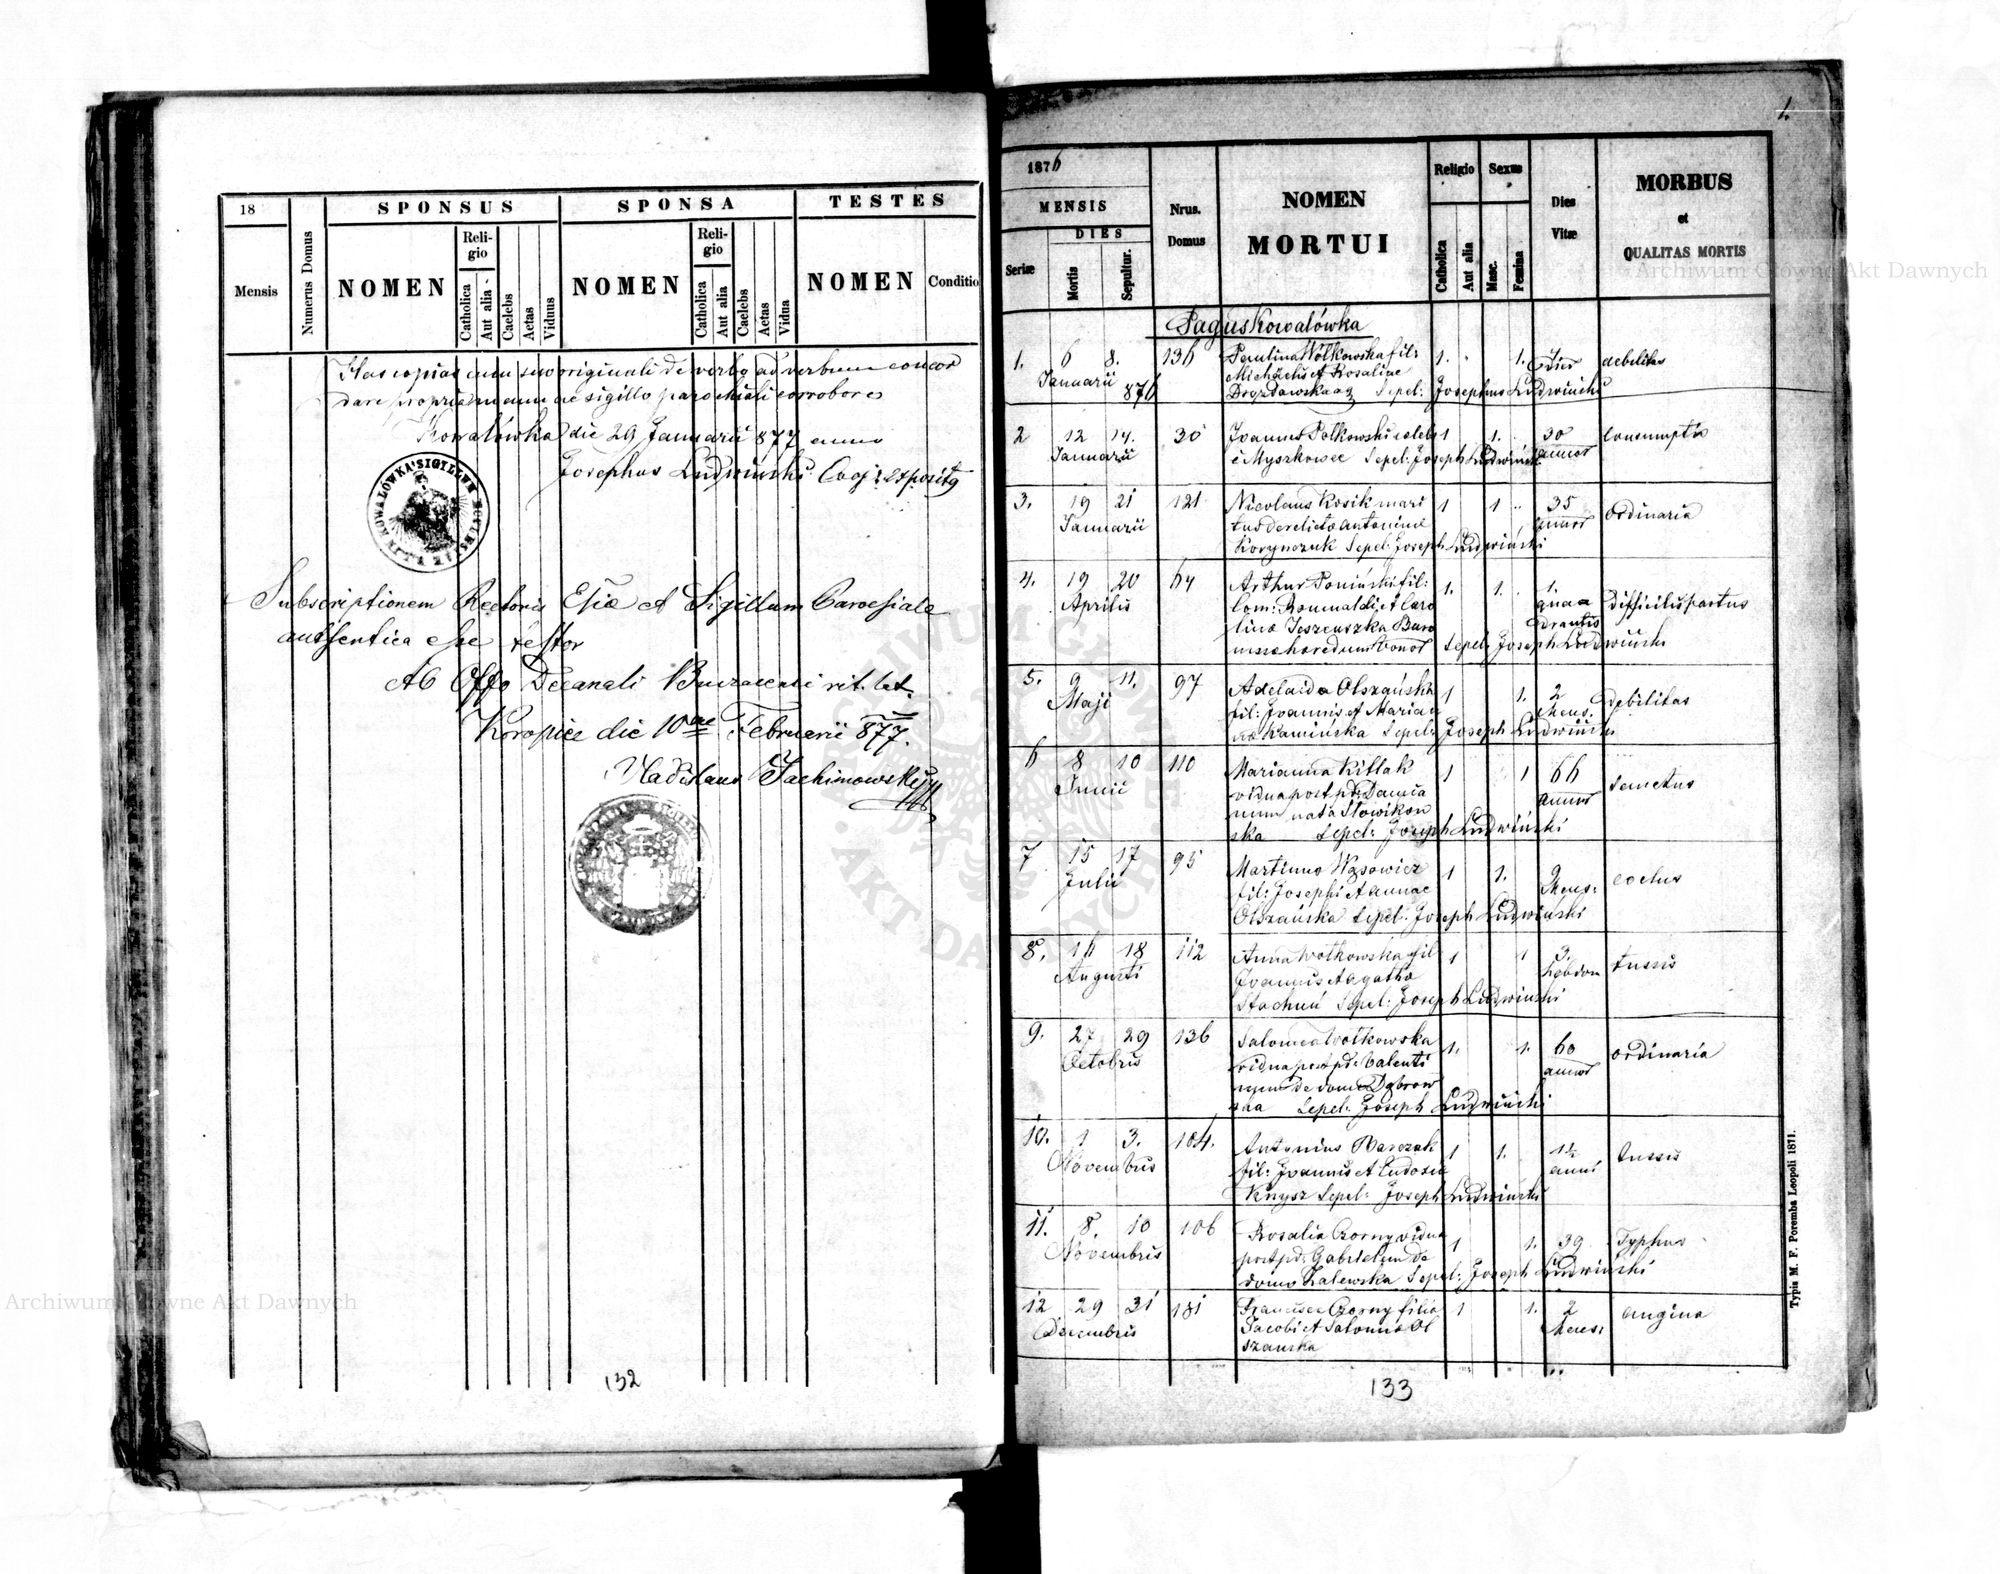 18
SPONSUS
SPONSA
TESTES
Mensis
Numerus Domus
NOMEN
Reli-
gio
Catholica
Aut alia
Caelebs
Aetas
Viduus
NOMEN
Reli-
gio
Catholica
Aut alia
Caelebs
Aetas
Vidua
NOMEN
Conditio
Has copias cum suo originali de verbo ad verbum concor
dare propria manu ac sigillo parochiali corroboro
Kowalówka die 29 Januarii 877 anno
Josephus Ludwiński Coop: exposits
Subscriptionem Rectoris Eccliae et Sigillum Paroesiale
authentica esse testor
Ab Offo Decanali Buczacensi rit. lat.
Koropiec die 10ae Februarii 877.
Vladislaus Jachimowski
132
1.
1876
MENSIS
DIES
Seriae
Mortis
Sepultur.
Nrus.
Domus
NOMEN
MORTUI
Religio
Catholica
Aut alia
Sexus
Masc.
Femina
Dies
Vitae
MORBUS
et
QUALITAS MORTIS
Pagus Kowalówka
1. 6 8. 136 Paulina Wołkowska fil: 1. 1. dies debilitas
Januarii Michaelis et Rosaliae
876 Drozdowska Sepel: Josephus Ludwiński
2 12 14. 30 Joannes Polkowski caelebs 1 1. 30 consumptio
Januarii e Myszkowce Sepel: Joseph Ludwiński annor
3. 19 21 121 Nicolaus Kosik mari 1 1 35 ordinaria
Januarii tus derelictae Antoninae annor
Korynczuk Sepel: Joseph Ludwiński
4. 19 20 64 Arthur Poniński fil: 1. 1. 1. difficilis partus
Aprilis Com: Romualdi et Caro quaa
linae Jeszeuszka Baro drantis
nissa haeredum bonor Sepel: Joseph Ludwiński
5. 9 11. 97 Adelaida Olszańska 1 1. 2 debilitas
Maji fil: Joannis et Marian Mens.
ae Kamińska Sepel: Joseph Ludwiński
6 8 10 110 Marianna Kitlak 1 1 66 senectus
Junii vidua post pd: Damia annor
num nata Słowikow
ska Sepel: Joseph Ludwiński
7 15 17 95 Martinus Wąsowicz 1 1. 9 coctus
Julii fil: Josephi et Annae Mens:
Olszańska Sepel: Joseph Ludwiński
8. 16 18 112 Anna Wołkowska fil 1 1 3. tussis
Augusti Joannis et Agatha hebdom
Stachura Sepel: Joseph Ludwiński
9. 27 29 136 Salomea Wołkowska 1. 1. 60 ordinaria
Octobris vidua post pd: Valenti annor
num de domo Dąbrow
ska Sepel: Joseph Ludwiński
10. 1 3. 104. Antonius Barczak 1 1. 1½ tussis
Novembris fil: Joannis et Eudosia anni
Knysz Sepel: Joseph Ludwiński
11. 8. 10 106 Rosalia Czorny vidua 1 1. 39 Typhus
Novembris post pd: Gabrielem de
domo Zalewska Sepel: Joseph Ludwiński
12 29 31 181 Francisca Czorny filia 1 1. 2 angina
Decembris Jacobi et Salomea Ol Mens:
szanska
133
Typis M. F. Poremba Leopoli 1871.
Archiwum Główne Akt Dawnych
Archiwum Główne Akt Dawnych
ARCHIWUM GŁÓWNE
AKT DAWNYCH